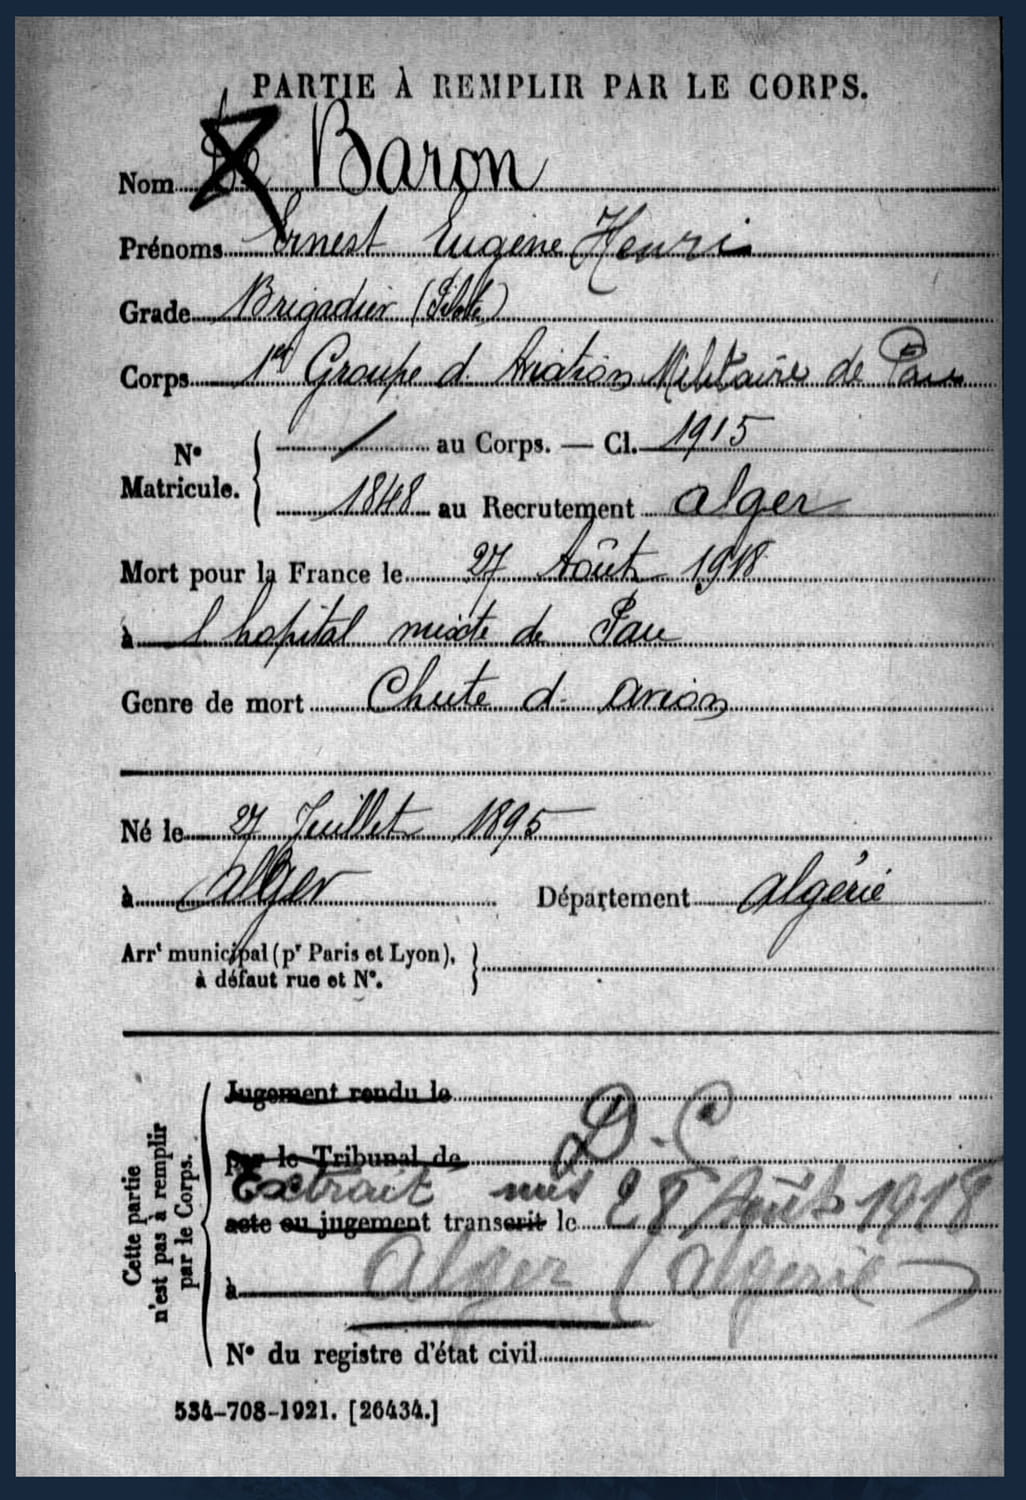 PARTIE À REMPLIR PAR LE CORPS.
Nom Baron
Prénoms Ernest Eugène Henri
Grade Brigadier (Pilote)
Corps 1er Groupe d'Aviation Militaire de Pau
N° Matricule. / au Corps. — Cl. 1915
1848 au Recrutement Alger
Mort pour la France le 27 Août 1918
à l'hopital mixte de Pau
Genre de mort Chute d'avion
Né le 27 Juillet 1895
à Alger Département Algérie
Arrt municipal (pr Paris et Lyon),
à défaut rue et N°.
Cette partie
n'est pas à remplir
par le Corps.
Jugement rendu le
D.C
par le Tribunal de
Extrait mis 28 Août 1918
acte ou jugement transcrit le
à Alger (Algerie)
N° du registre d'état civil
534-708-1921. [26434.]